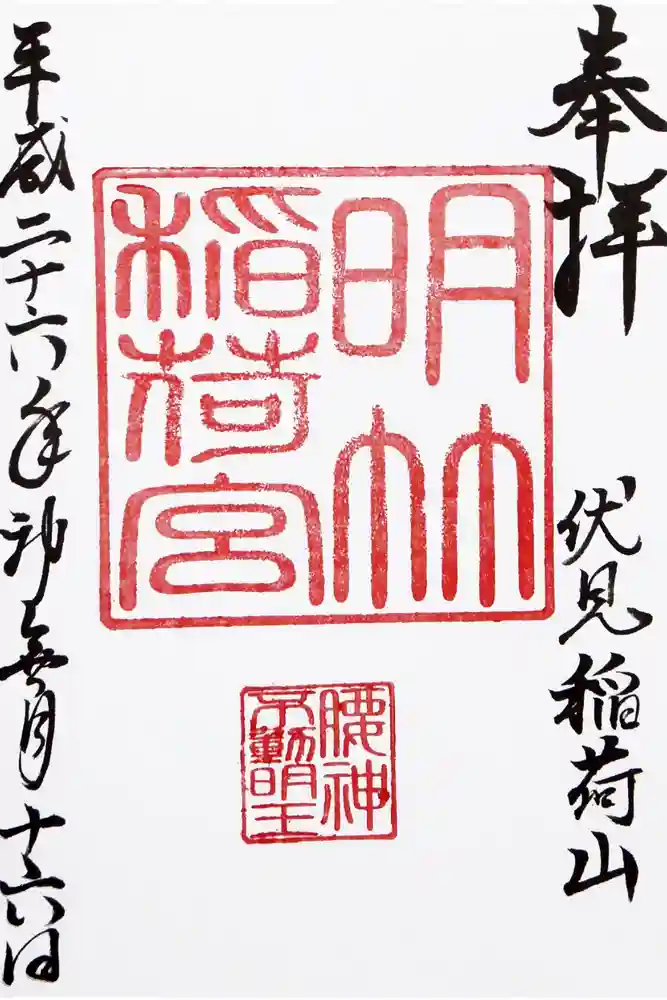 奉拝
伏見稲荷山
明竹
稲荷宮
腰神
不動明王
平成二十六年神無月十六日